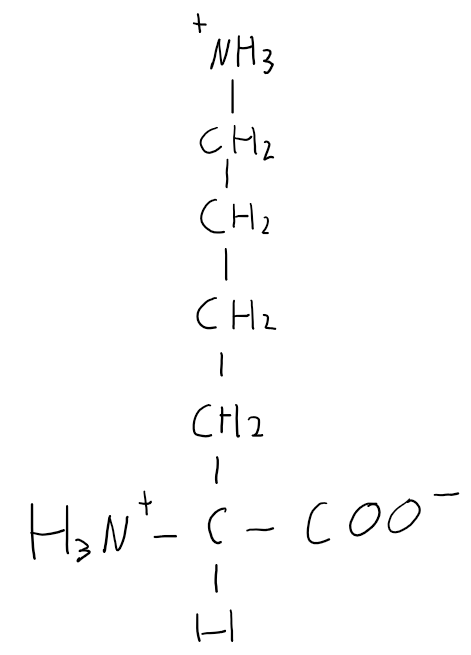 +
NH3
|
CH2
|
CH2
|
CH2
|
CH2
|
H3N+ - C - COO-
|
H